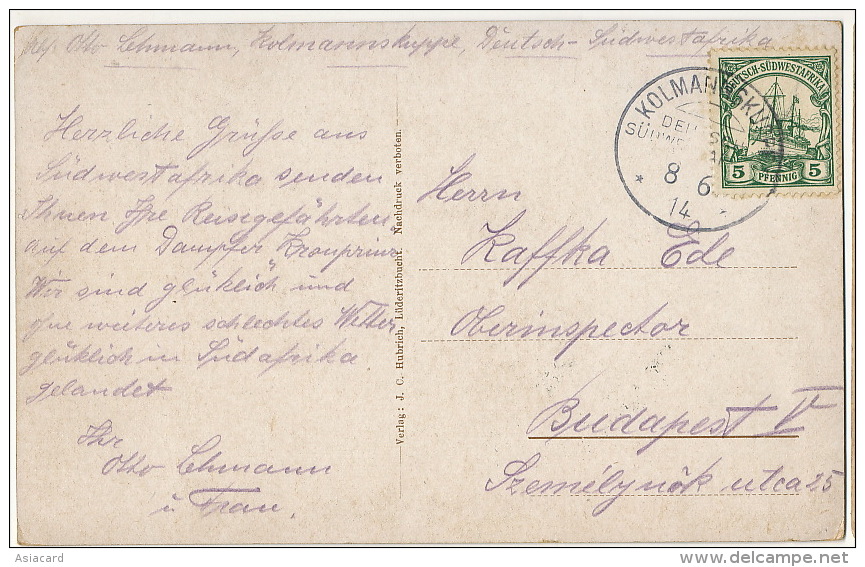 Otto Lehmann, Kolmannskuppe, Deutsch-Südwestafrika
Herzliche Grüße aus
Südwestafrika senden
Ihnen Ihre Reisegefährten
auf dem Dampfer Kronprinz
Wir sind glüklich und
ohne weiteres schlechtes Wetter
glüklich in Südafrika
gelandet
Ihr
Otto Lehmann
u Frau.
Verlag: J. C. Hubrich, Lüderitzbucht. Nachdruck verboten.
KOLMANNSKUPPE
8 6
14
DEUTSCH-SÜDWESTAFRIKA
5 PFENNIG 5
Herrn
Kaffka Ede
Oberinspector
Budapest V
Személynök utca 25
Asiacard
www.delcampe.net